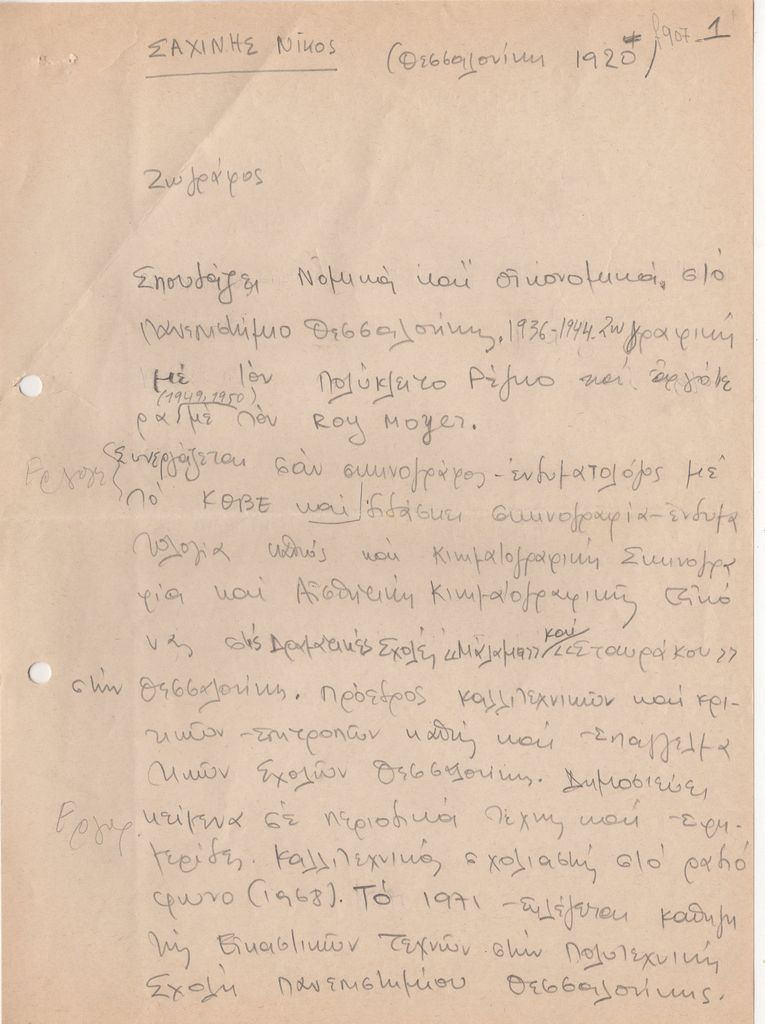 ΣΑΧΙΝΗΣ Νίκος (Θεσσαλονίκη 1920) 1907 - 1
Ζωγράφος
Σπουδάζει Νομικά και οικονομικά, στό
Πανεπιστήμιο Θεσσαλονίκης, 1936-1944. Ζωγραφική
μέ τόν Πολύκλειτο Ρέγκο καί ἀργότε
(1949, 1950)
ρα μέ τόν Roy Moyer.
Συνεργάζεται σάν σκηνογράφος - ἐνδυματολόγος μέ
τό ΚΘΒΕ καί διδάσκει σκηνογραφία - ἐνδυμα
τολογία καθώς καί Κινηματογραφική Σκηνογρα
φία καί Αἰσθητική Κινηματογραφικῆς Εἰκό
νας στίς Δραματικές Σχολές "Μαλαμή" καί "Σταυράκου"
στήν Θεσσαλονίκη. Πρόεδρος καλλιτεχνικῶν καί κρι-
τικῶν ἐπιτροπῶν καθώς καί Ἐπαγγελμα
τικῶν Σχολῶν Θεσσαλονίκης. Δημοσιεύει
κείμενα σέ περιοδικά τέχνης καί ἐφη-
μερίδες. Καλλιτεχνικός σχολιαστής στό ραδιό
φωνο (1968). Τό 1971 ἐκλέγεται καθηγη
τής Εἰκαστικῶν Τεχνῶν στήν Πολυτεχνική
Σχολή Πανεπιστημίου Θεσσαλονίκης.